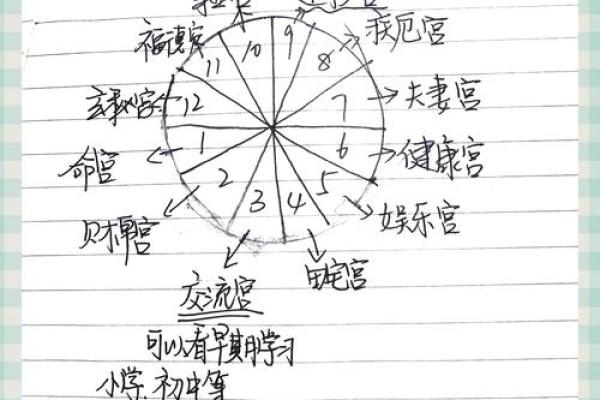 福德宫
疾厄宫
玄秘宫
夫妻宫
命宫
健康宫
财帛宫
娱乐宫
田宅宫
交流宫
可以看早期学习
小学、初中等
1
2
3
4
5
6
7
8
9
10
11
12